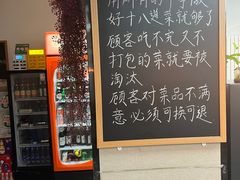 好十八道菜就够了
顾客吃不完又不
打包的菜就要被
淘汰
顾客对菜品不满
意必须可换可退